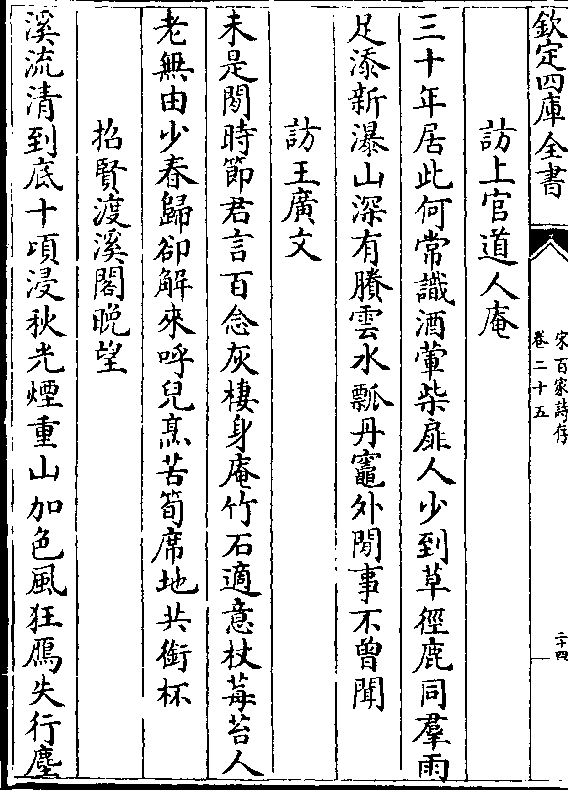 欽定四庫全書
宋百家詩存
卷二十五
二十四
訪上官道人庵
三十年居此何常識酒葷柴扉人少到草徑鹿同羣雨
足添新瀑山深有賸雲水瓢丹竈外閒事不曾聞
訪王廣文
未是閒時節君言百念灰棲身庵竹石適意杖莓苔人
老無由少春歸卻解來呼兒烹苦筍席地共銜杯
招賢渡溪閣晚望
溪流清到底十頃浸秋光煙重山加色風狂鴈失行塵